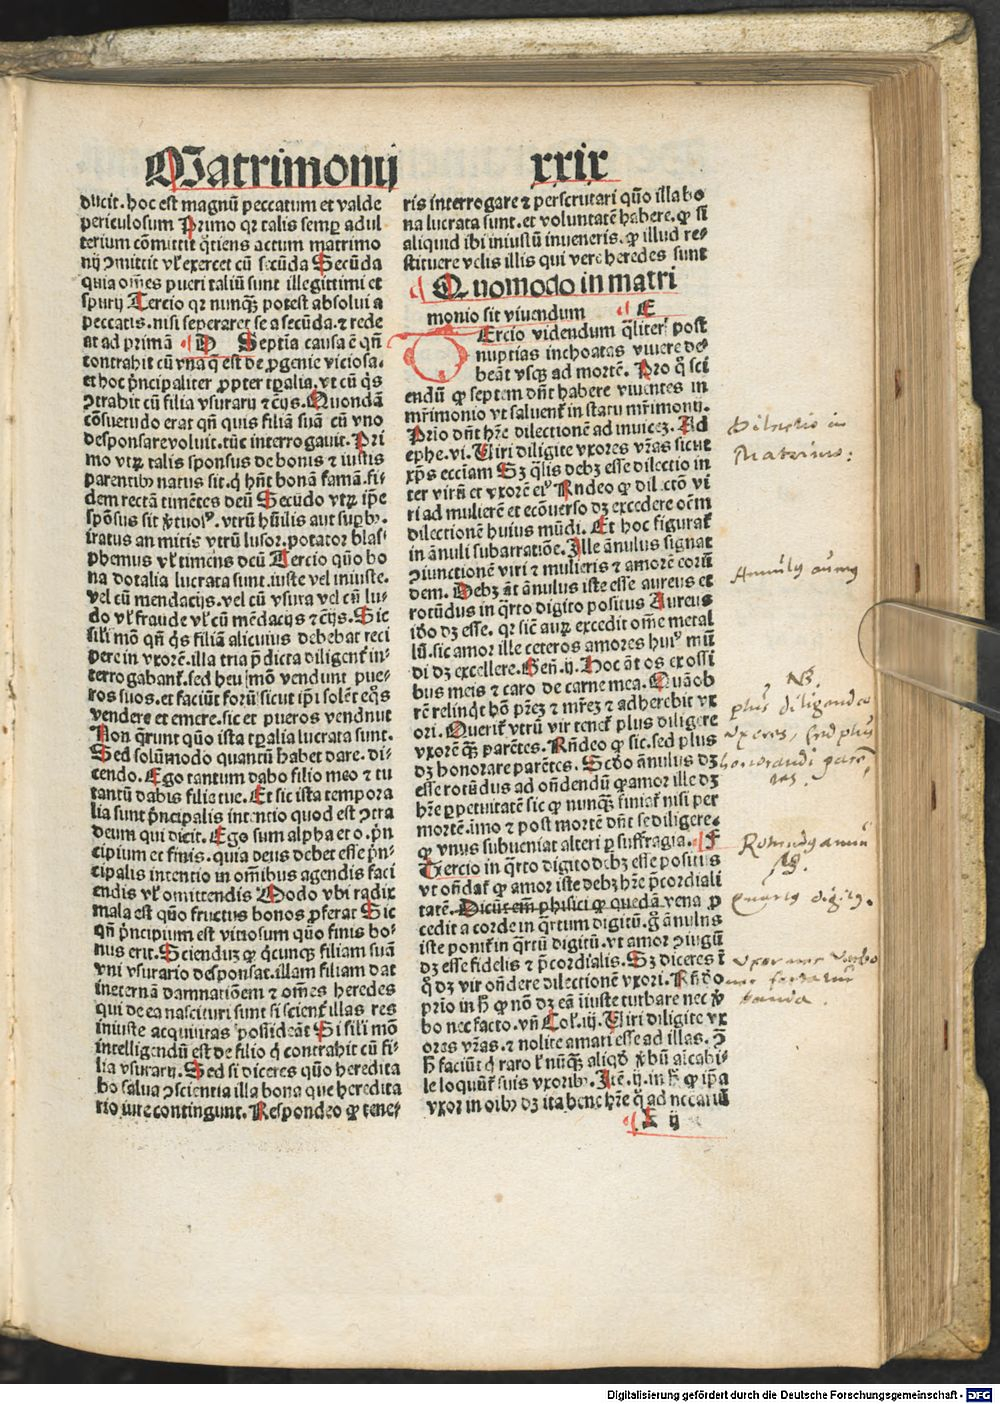 Matrimonij xxix
ducit. hoc est magnū peccatum et valde
periculosum Primo qꝛ talis semꝑ adul
terium cōmittit q̄tiens actum matrimo
nij ꝯmittit vl̓ exercet cū secūda Secūda
quia om̄es pueri taliū sunt illegittimi et
spurij Tercio qꝛ nunqꝫ potest absolui a
peccatis. nisi seperaret se a secūda. ⁊ rede
at ad primā D Septia causa ē qn̄
contrahit cū vna q̄ est de ꝓgenie viciosa.
et hoc p̄ncipaliter ꝓpter tꝑalia. vt cū q̇s
ꝯtrahit cū filia vsurarij ⁊ c̄ijs. Quondā
cōsuetudo erat qn̄ quis filiā suā cū vno
desponsare voluit. tūc interrogauit. Pri
mo vtꝝ talis sponsus de bonis ⁊ iustis
parentibꝰ natus sit. q̇ hn̄t bonā famā. fi-
dem rectā timētes deū Secūdo vtꝝ ip̄e
spōsus sit v̓tuosꝰ. vtrū hūilis aut suꝑbꝰ.
iratus an mitis vtrū lusor. potator blas-
phemus vl̓ timens deū Tercio quō bo
na dotalia lucrata sunt. iuste vel iniuste.
vel cū mendacijs. vel cū vsura vel cū lu-
do vl̓ fraude vl̓ cū mēdacijs ⁊ c̄ijs. Sic
sili mō qn̄ q̇s filiā alicuius debebat reci
pere in vxorē. illa tria p̄dicta diligent̓ in-
terrogabant̓. sed heu mō vendunt pue-
ros suos. et faciūt forū sicut ip̄i solēt eq̄s
vendere et emere. sic et pueros vendnut
Non q̄runt quō ista tꝑalia lucrata sunt.
Sed solūmodo quantū habet dare. di-
cendo. Ego tantum dabo filio meo ⁊ tu
tantū dabis filie tue. Et sic ista tempora
lia sunt p̄ncipalis intentio quod est ꝯtra
deum qui dicit. Ego sum alpha et o. p̄n
cipium et finis. quia deus debet esse p̄n-
cipalis intentio in om̄ibus agendis faci
endis vl̓ omittendis Modo vbi radix
mala est quō fructus bonos ꝓferat Sic
qn̄ p̄ncipium est vitiosum quō finis bo-
nus erit. Sciendūꝫ ꝙ q̇cunqꝫ filiam suā
vni vsurario desponsat. illam filiam dat
in eternā damnatiōem ⁊ om̄es heredes
qui de ea nascituri sunt si scient̓ illas res
iniuste acquisitas possideāt Si sili mō
intelligendū est de filio q̇ contrahit cū fi-
lia vsurarij. Sed si diceres quō heredita
bo salua ꝯscientia illa bona que heredita
rio iure contingunt. Respondeo ꝙ tene-
ris interrogare ⁊ perscrutari quō illa bo
na lucrata sunt. et voluntatē habere. ꝙ si
aliquid ibi iniustū inueneris. ꝙ illud re-
stituere velis illis qui vere heredes sunt
Quomodo in matri
monio sit viuendum E
Tercio videndum q̄liter post
nuptias inchoatas viuere de-
beāt vsqꝫ ad mortē. Pro q̊ sci
endū ꝙ septem dn̄t habere viuentes in
mr̄imonio vt saluent̓ in statu mr̄imonij.
Prio dn̄t hr̄e dilectionē ad inuicē. Ad
ephe. vi. Uiri diligite vxores vr̄as sicut
xp̄s eccl̄iam Sꝫ q̄lis debꝫ esse dilectio in
ter virū et vxorē eiꝰ Rn̄deo ꝙ dilectō vi
ri ad mulierē et ecōuerso dꝫ excedere oēm
dilectionē huius mūdi. Et hoc figurat̓
in ānuli subarratiōe. Ille ānulus signat
ꝯiunctionē viri ⁊ mulieris ⁊ amorē eorū
dem. Debꝫ āt ānulus iste esse aureus et
rotūdus in q̄rto digito positus Aureus
iō dꝫ esse. qꝛ sic̄ auꝝ excedit om̄e metal
lū. sic amor ille ceteros amores huiꝰ mū
di dꝫ excellere. Gen̄. ij. Hoc āt os ex ossi
bus meis ⁊ caro de carne mea. Quāob
rē relinqt hō pr̄eꝫ ⁊ mr̄eꝫ ⁊ adherebit vx
ori. Querit̓ vtrū vir tenet̓ plus diligere
vxorē qꝫ parētes. Rn̄deo ꝙ sic. sed plus
dꝫ honorare parētes. Scdō ānulus dꝫ
esse rotūdus ad on̄dendū ꝙ amor ille dꝫ
hr̄e ꝑpetuitatē sic ꝙ nunqꝫ finiat̓ nisi per
mortē. imo ⁊ post mortē dn̄t se diligere.
ꝙ vnus subueniat alteri ꝑ suffragia. F
Tercio in q̄rto digito debꝫ esse positus
vt on̄dat̓ ꝙ amor iste debꝫ hr̄e p̄cordiali
tatē. Dicūt em̄ phisici ꝙ quedā vena ꝓ
cedit a corde in q̄rtum digitū. g̊ ānulus
iste ponit̓ in q̄rtū digitū. vt amor ꝯiugū
dꝫ esse fidelis ⁊ p̄cordialis. Sꝫ diceres ī
q̊ dꝫ vir on̄dere dilectionē vxori. Rn̄do
prio in h̄ ꝙ nō dꝫ eā iniuste turbare nec v̓
bo nec facto. vn̄ Col̓. iij. Uiri diligite vx
ores vr̄as. ⁊ nolite amari esse ad illas. ꝯ
h̄ faciūt q̇ raro l̓ nūqꝫ aliqd̓ v̓bū amabi-
le loqunt̓ suis vxoribꝰ. Itē. ij. in h̄ ꝙ ip̄a
vxor in oibꝰ dꝫ ita bene hr̄e q̄ ad necariū
E ij
Dilectio in
Matrimo:
Annulus aureus
NB.
plus diligendae
Uxores, sed plus
honorandi paren
tes.
Rotundus annu
lus.
Quartus digitus.
Uxor nec verbo
nec facto tur
banda.
Digitalisierung gefördert durch die Deutsche Forschungsgemeinschaft - DFG